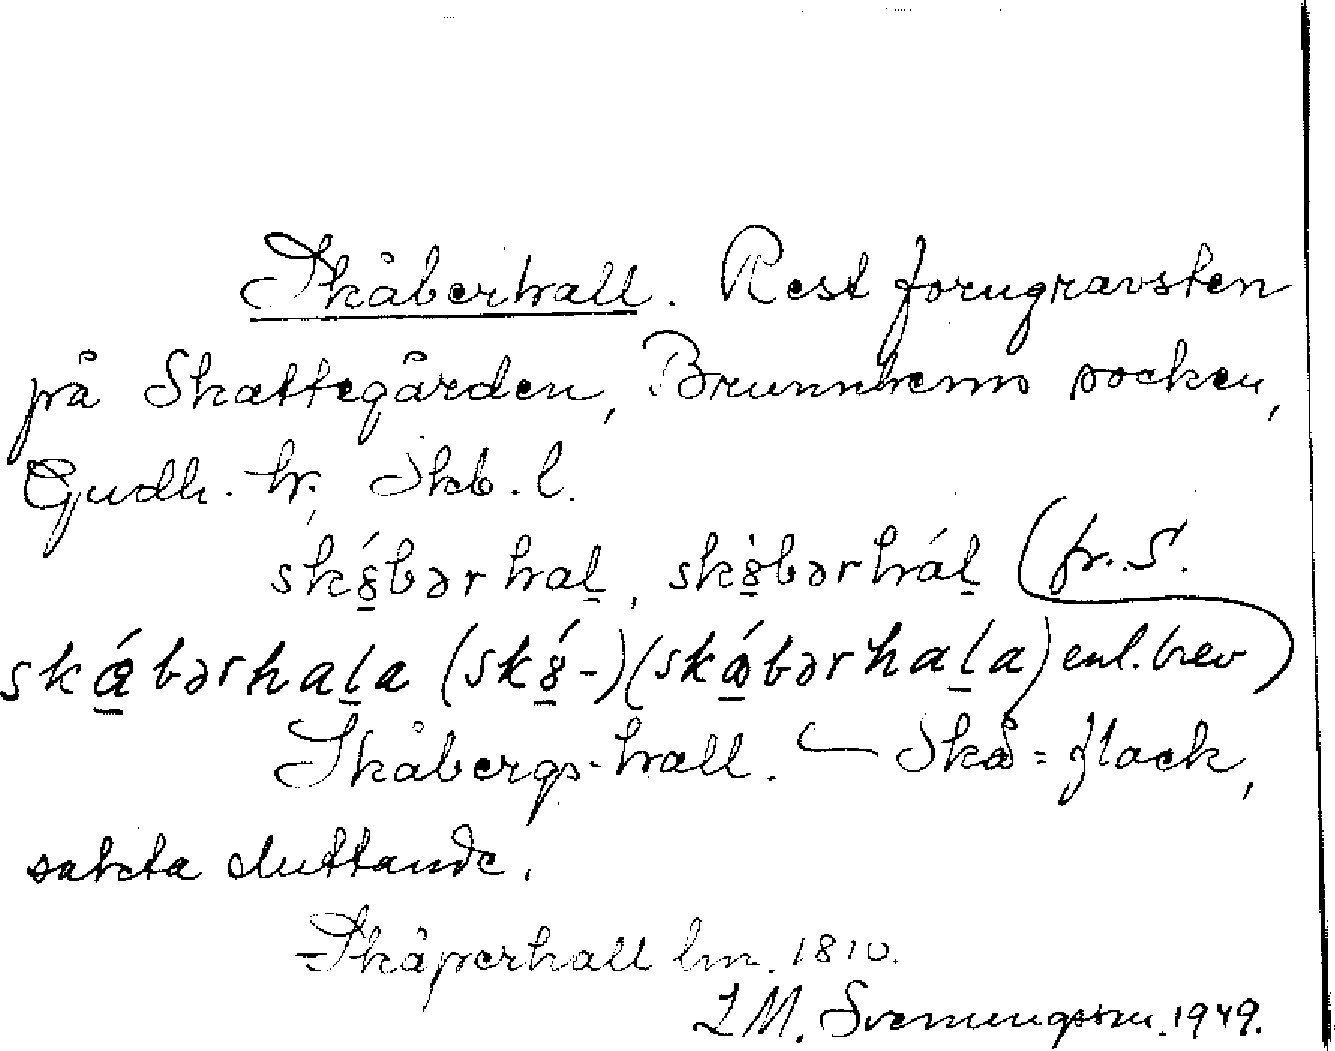 Skåberhall. Rest forngravsten
på Skattegården, Brunnhems socken,
Gudh. hr, Skb. l.
sk8́bərhaḻ, sk8̀bərháḻ (fr. S.
skǻbərhaḻa (sk8́-) (skǻbərhaḻa) enl. brev)
Skåbergs-hall. — Skå = flack,
sakta sluttande.
Skåperhall lm. 1810.
L M. Svenungsson. 1949.